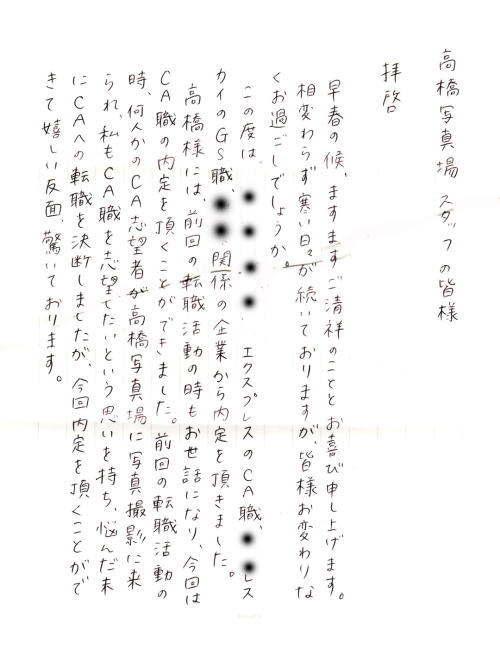 高橋写真場 スタッフの皆様
拝啓
早春の候、ますますご清祥のこととお喜び申し上げます。
相変わらず寒い日々が続いておりますが、皆様お変わりな
くお過ごしでしょうか。
この度は、 エクスプレスのCA職、 レス
カイのGS職、 関係の企業から内定を頂きました。
高橋様には、前回の転職活動の時もお世話になり、今回は
CA職の内定を頂くことができました。前回の転職活動の
時、何人かのCA志望者が高橋写真場に写真撮影に来
られ、私もCA職を志望したいという思いを持ち、悩んだ末
にCAへの転職を決断しましたが、今回内定を頂くことがで
きて嬉しい反面、驚いております。